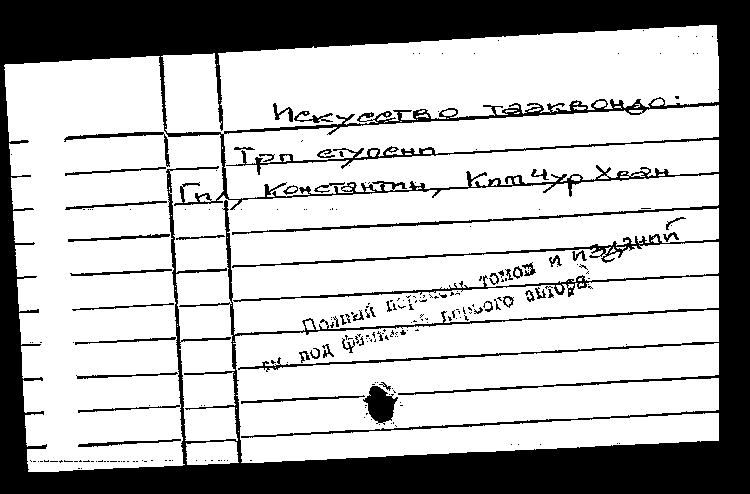 Искусство таэквондо:
Три ступени
Гил, Константин, Ким Чур Хван
Полный перечень томов и изданий
см. под фамилией первого автора